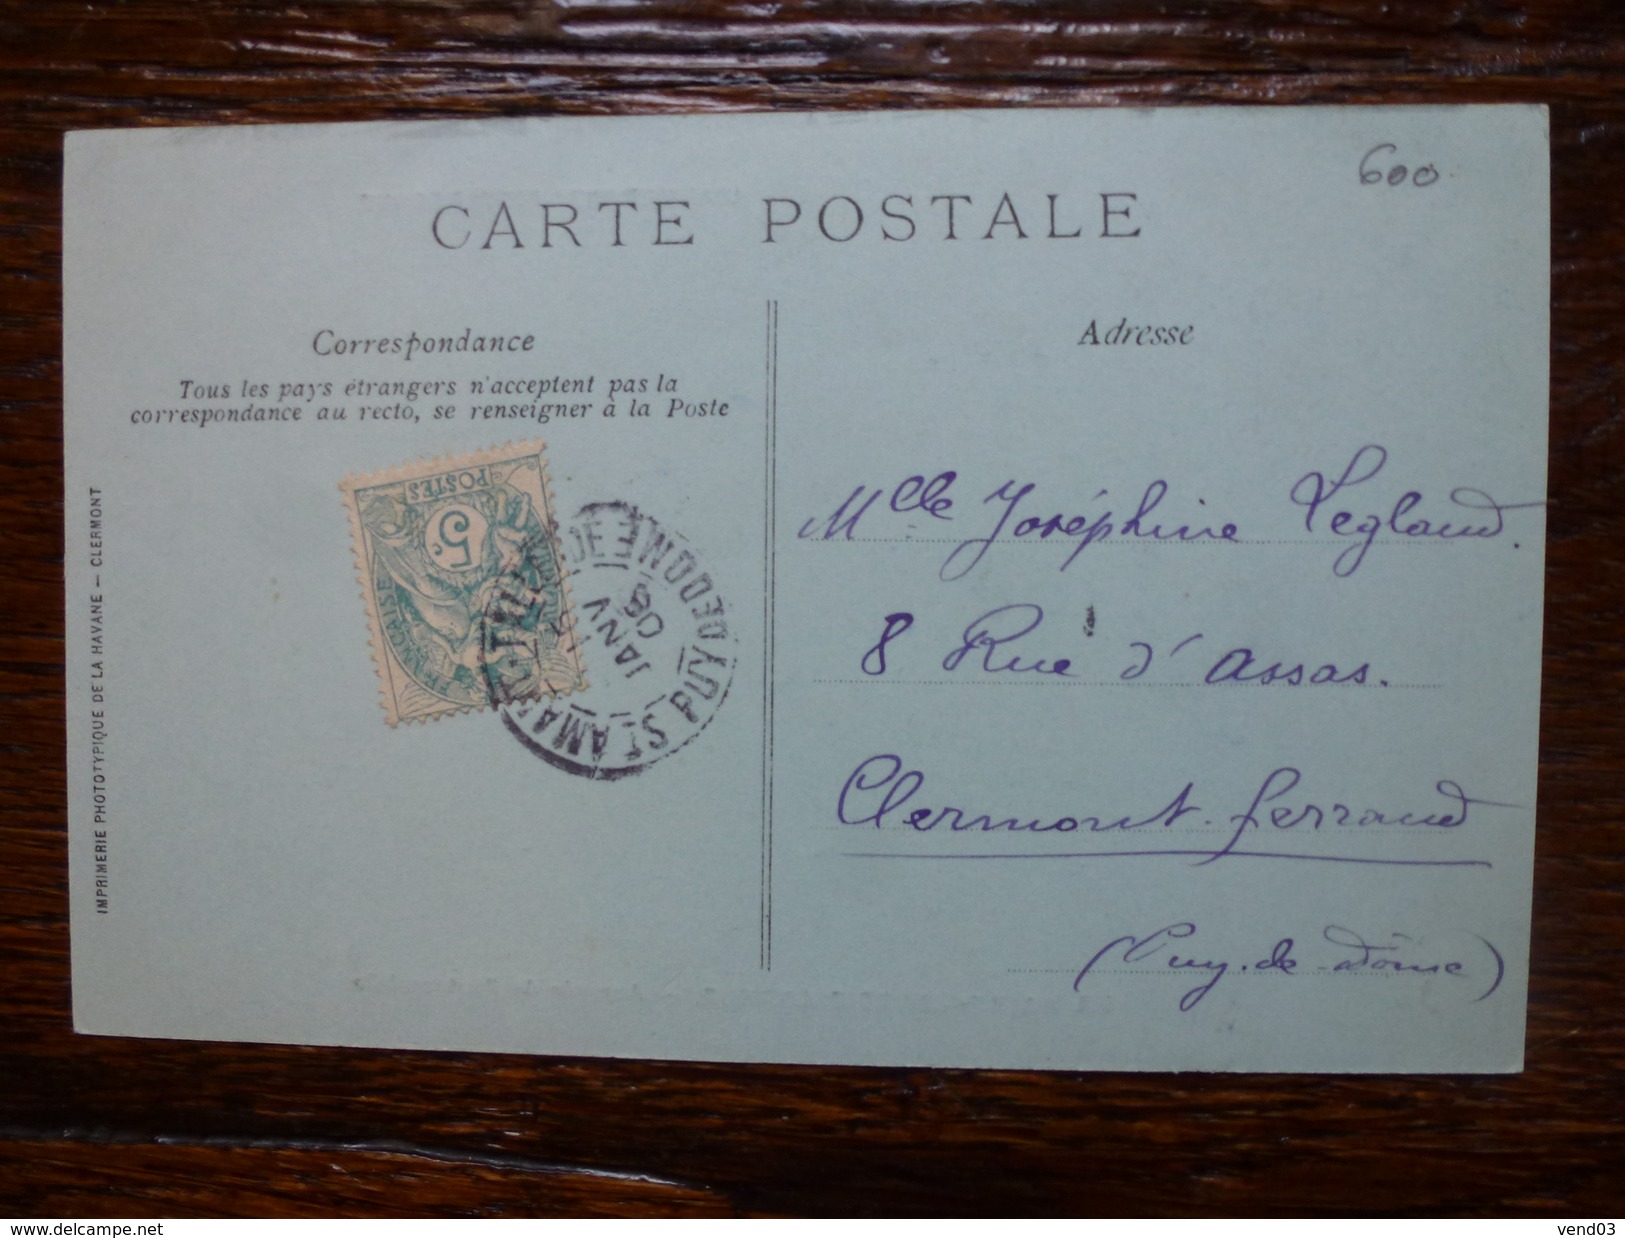 600
CARTE POSTALE
Correspondance
Tous les pays étrangers n'acceptent pas la
correspondance au recto, se renseigner à la Poste
Adresse
IMPRIMERIE PHOTOTYPIQUE DE LA HAVANE — CLERMONT
POSTES
5c
FRANÇAISE
ST AMANT-TALLENDE
JANV
06
PUY DE DOME
Mlle Joséphine Legland.
8 Rue d'Assas.
Clermont-ferrand
(Puy-de-Dôme)
delcampe.net
vend03